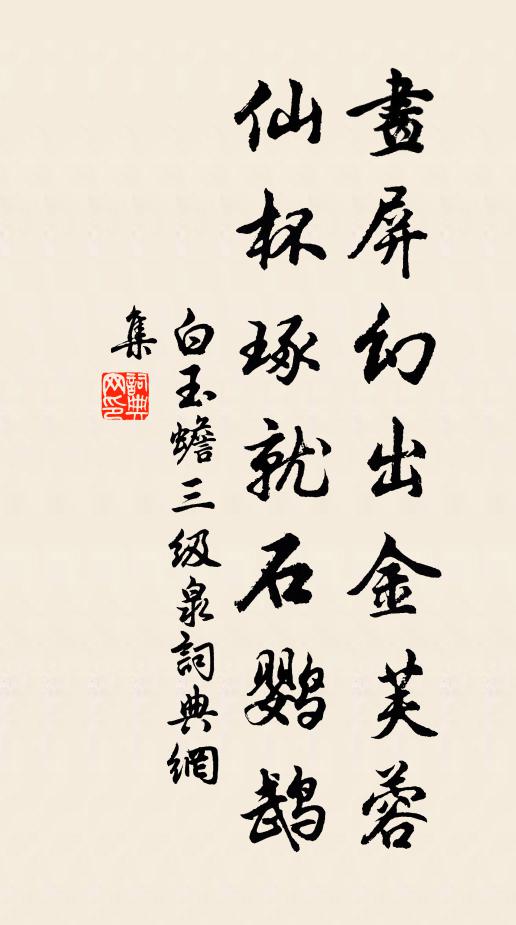 畫屏幻出金芙蓉
仙杯琢就石鹦鹉
白玉蟾三级泉詞典網
集
詞典網印